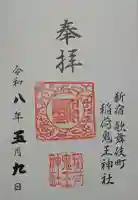 奉拝
新宿 歌舞伎町
稲荷鬼王神社
令和八年五月九日